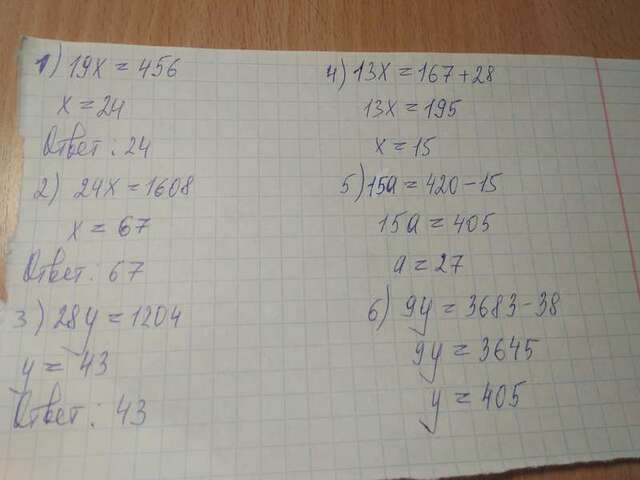 1) 19x = 456
x = 24
Ответ: 24
2) 24x = 1608
x = 67
Ответ: 67
3) 28y = 1204
y = 43
Ответ: 43
4) 13x = 167 + 28
13x = 195
x = 15
5) 15a = 420 - 15
15a = 405
a = 27
6) 9y = 3683 - 38
9y = 3645
y = 405